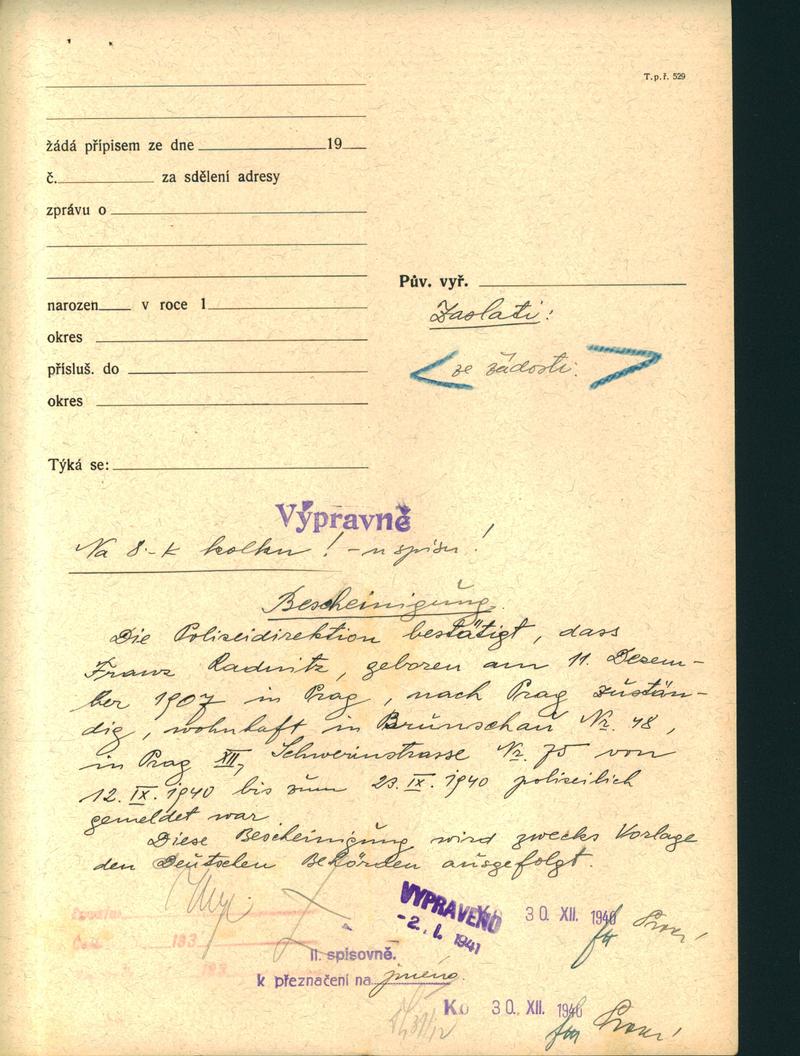 T. p. ř. 529
žádá přípisem ze dne 19
č. za sdělení adresy
zprávu o
narozen v roce 1
okres
přísluš. do
okres
Týká se:
Pův. vyř.
Zaslati:
< ze žádosti. >
Výpravně
Na 8.-K kolku! - u spisu!
Bescheinigung.
Die Polizeidirektion bestätigt, dass
Franz Radnitz, geboren am 11. Dezem-
ber 1907 in Prag, nach Prag zustän-
dig, wohnhaft in Brünschau Nr. 48,
in Prag XII, Schwerinstrasse Nr. 75 von
12. IX. 1940 bis zum 23. IX. 1940 polizeilich
gemeldet war.
Diese Bescheinigung wird zwecks Vorlage
den Deutschen Behörden ausgefolgt.
193
193
VYPRAVENO
-2. I. 1941
30. XII. 1940
II. spisovně.
k přeznačení na jméno.
Ko 30. XII. 1940